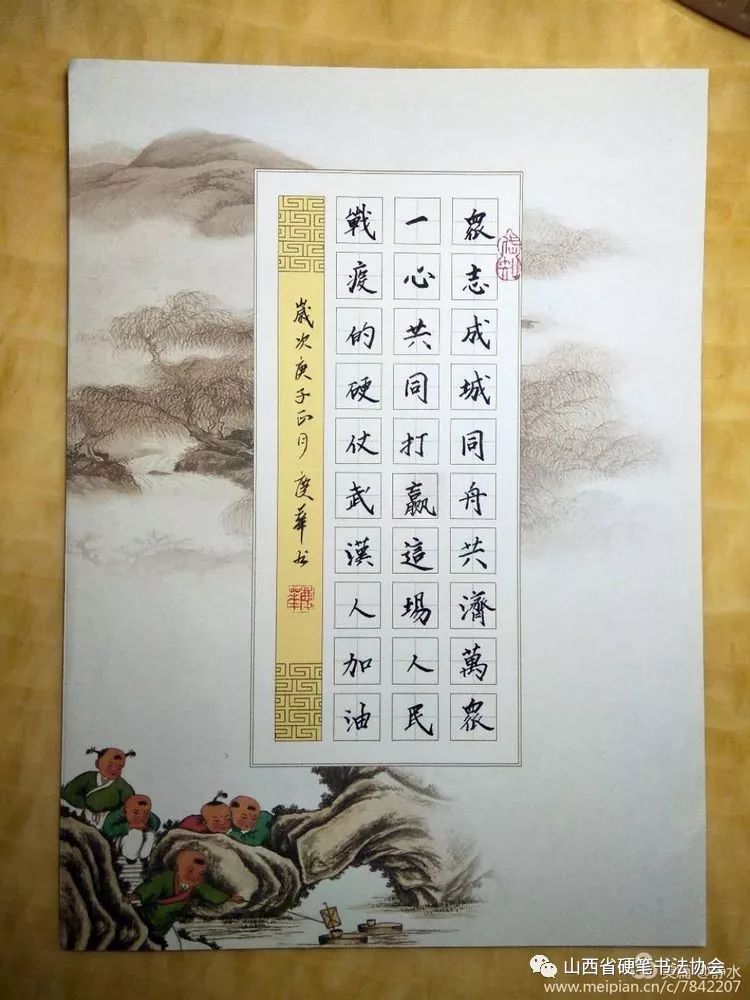 眾志成城同舟共濟萬眾
一心共同打贏這場人民
戰疫的硬仗武漢人加油
歲次庚子正月慶華书
山西省硬笔书法协会
www.meipian.cn/c/7842207